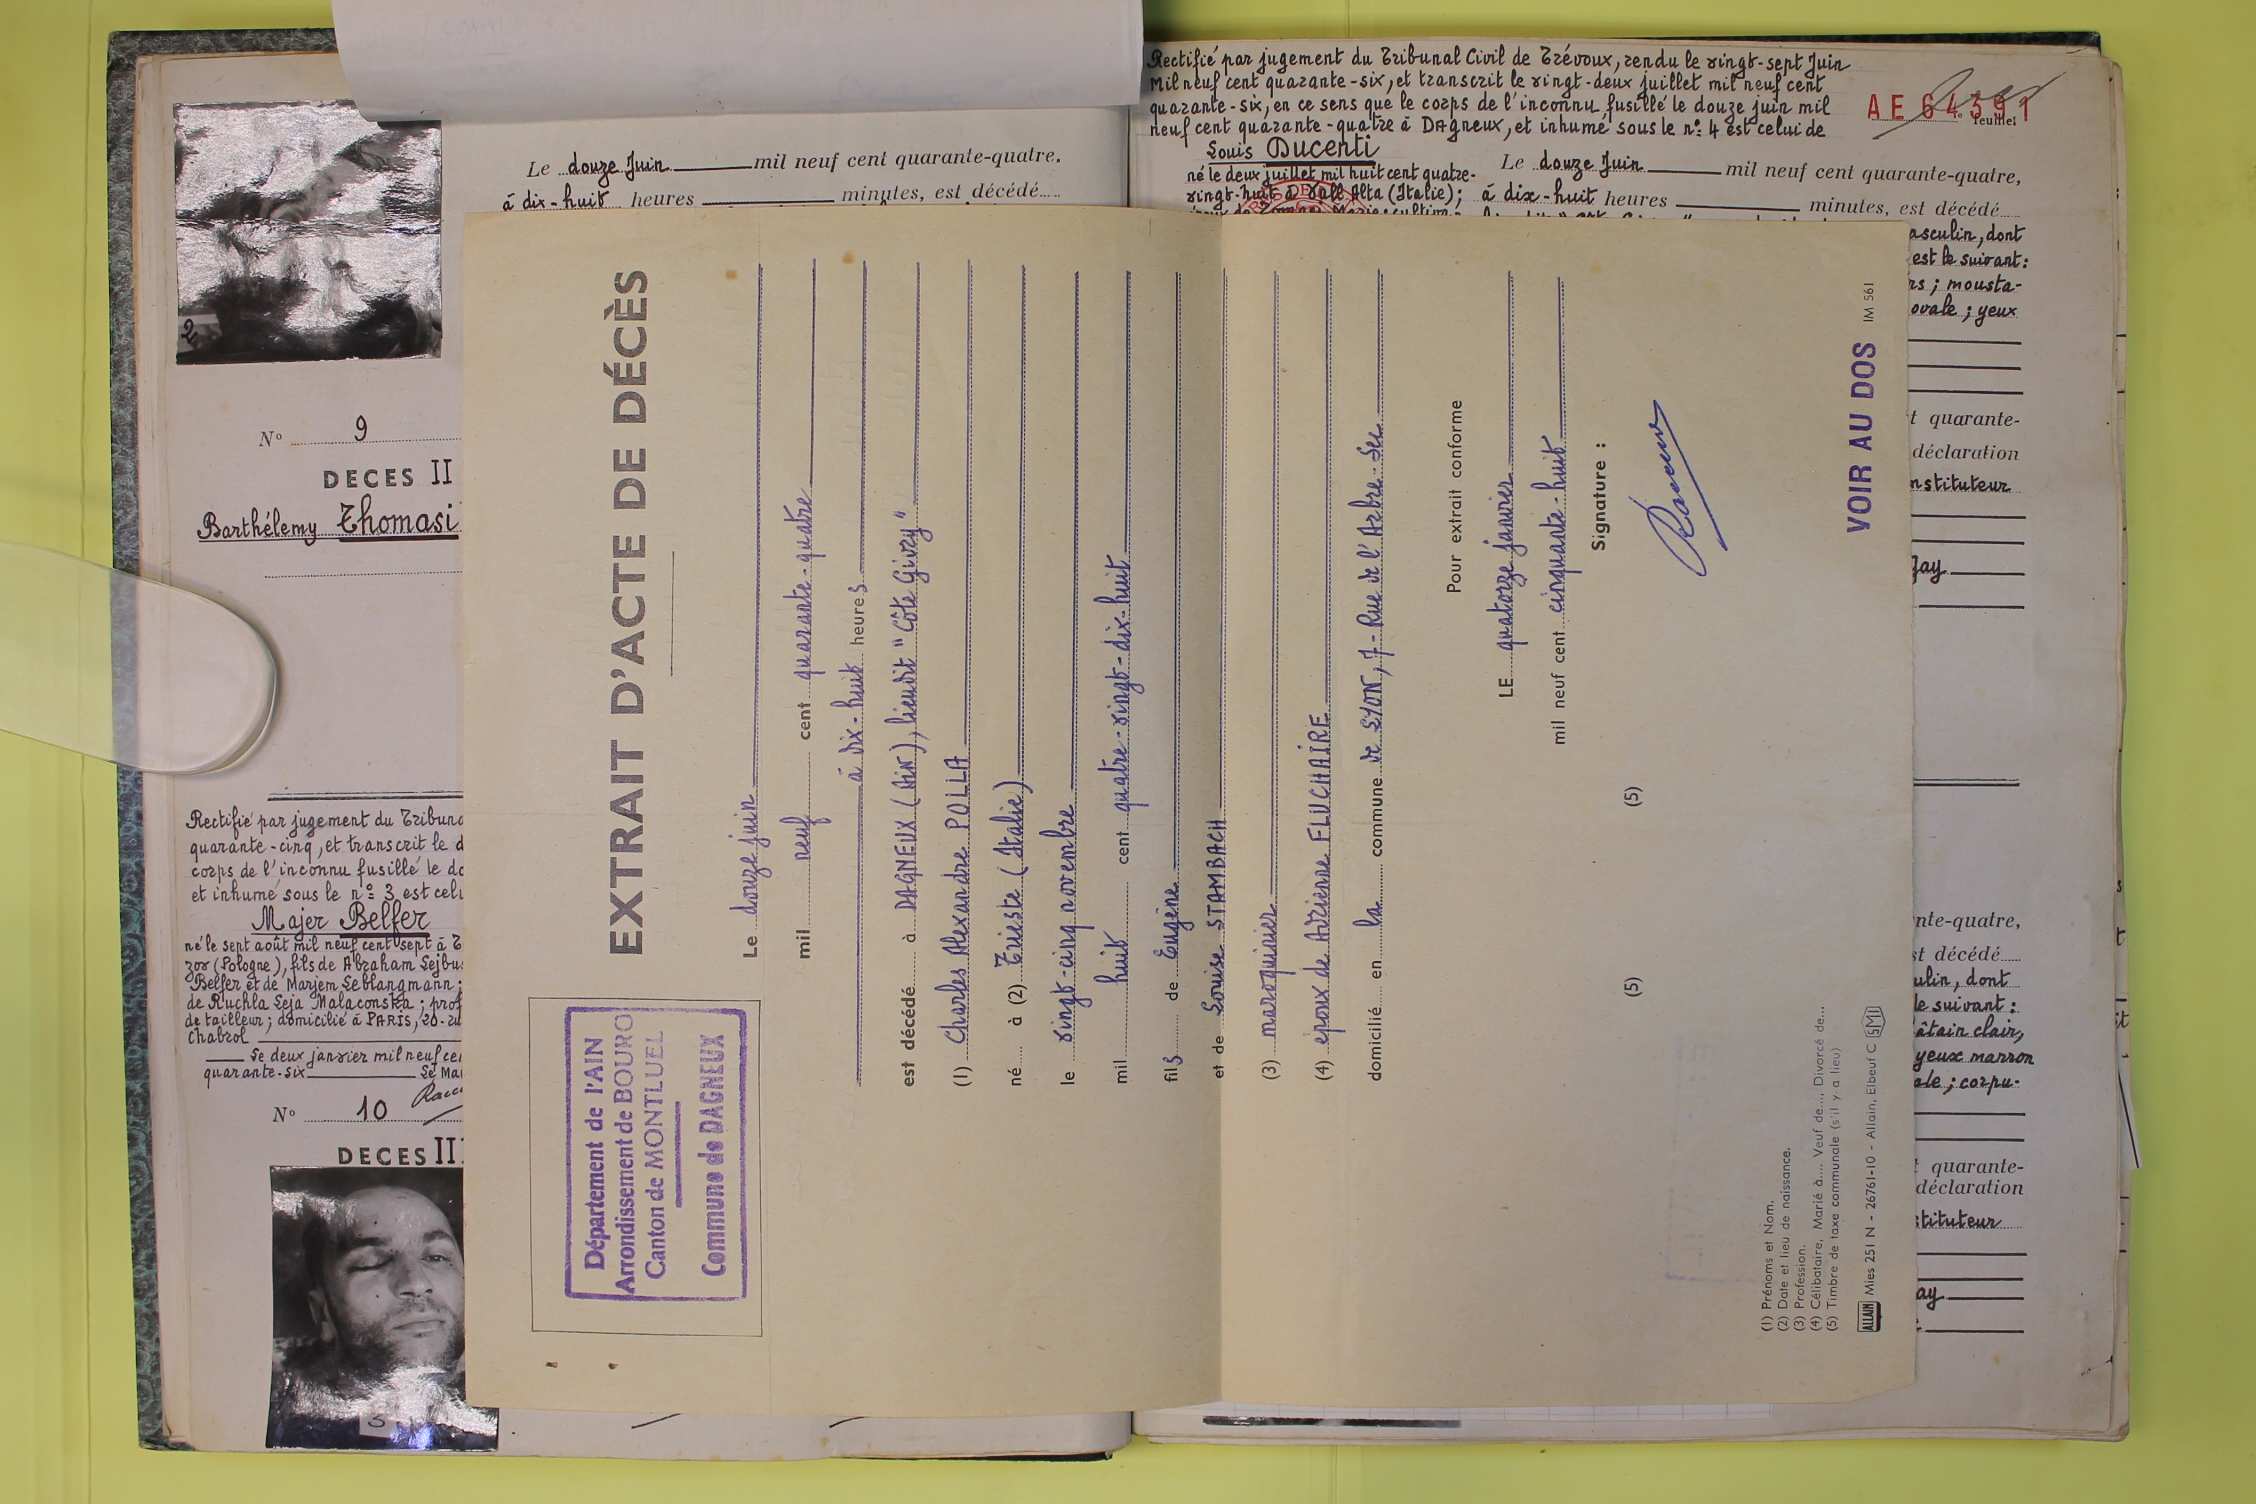 Le douze Juin mil neuf cent quarante-quatre.
à dix-huit heures minutes, est décédé
2
N° 9
DECES II
Barthélemy Thomasi
Rectifié par jugement du Tribuna
quarante-cinq, et transcrit le d
corps de l'inconnu fusillé le do
et inhumé sous le n° 3 est celu
Majer Belfer
né le sept août mil neuf cent sept à
zow (Pologne), fils de Abraham Lejbu
Belfer et de Marjem Leblangmann;
de Ruchla Leja Malaconska; prof
de tailleur; domicilié à PARIS, 20-ru
chabrol
Le deux janvier mil neuf ce
quarante-six Le Ma
N° 10
DECES III
EXTRAIT D'ACTE DE DÉCÈS
Département de l'AIN
Arrondissement de BOURG
Canton de MONTLUEL
Commune de DAGNEUX
Le douze juin
mil neuf cent quarante-quatre
à dix-huit heures
est décédé à DAGNEUX (Ain), lieudit "Côte Givry"
(1) Charles Alexandre POLLA
né à (2) Trieste (Italie)
le vingt-cinq novembre
mil huit cent quatre-vingt-dix-huit
fils de Eugène
et de Louise STAMBACH
(3) maroquinier
(4) époux de Arienne FLUCHAIRE
domicilié en la commune de LYON, 7-Rue de l'Arbre-Sec
Pour extrait conforme
LE quatorze janvier
mil neuf cent cinquante-huit
Signature :
(5) (5)
(1) Prénoms et Nom.
(2) Date et lieu de naissance.
(3) Profession.
(4) Célibataire, Marié à.... Veuf de..., Divorcé de...
(5) Timbre de taxe communale (s'il y a lieu)
ALLAIN Mies 251 N - 26761-10 - Allain, Elbeuf C SMI
VOIR AU DOS IM 561
Rectifié par jugement du Tribunal Civil de Trévoux, rendu le vingt-sept Juin
Mil neuf cent quarante-six, et transcrit le vingt-deux juillet mil neuf cent
quarante-six, en ce sens que le corps de l'inconnu fusillé le douze juin mil
neuf cent quarante-quatre à DAgneux, et inhumé sous le n° 4 est celui de
Louis Ducenti
né le deux juillet mil huit cent quatre-
vingt-huit à Vall Alta (Italie);
AE 64391
feuillet
Le douze Juin mil neuf cent quarante-quatre,
à dix-huit heures minutes, est décédé
asculin, dont
est le suivant:
rs; mousta-
ovale; yeux
t quarante-
déclaration
nstituteur
Jay
nte-quatre,
st décédé
ulin, dont
le suivant:
âtain clair,
yeux marron
ale; corpu-
t quarante-
déclaration
stituteur
ay